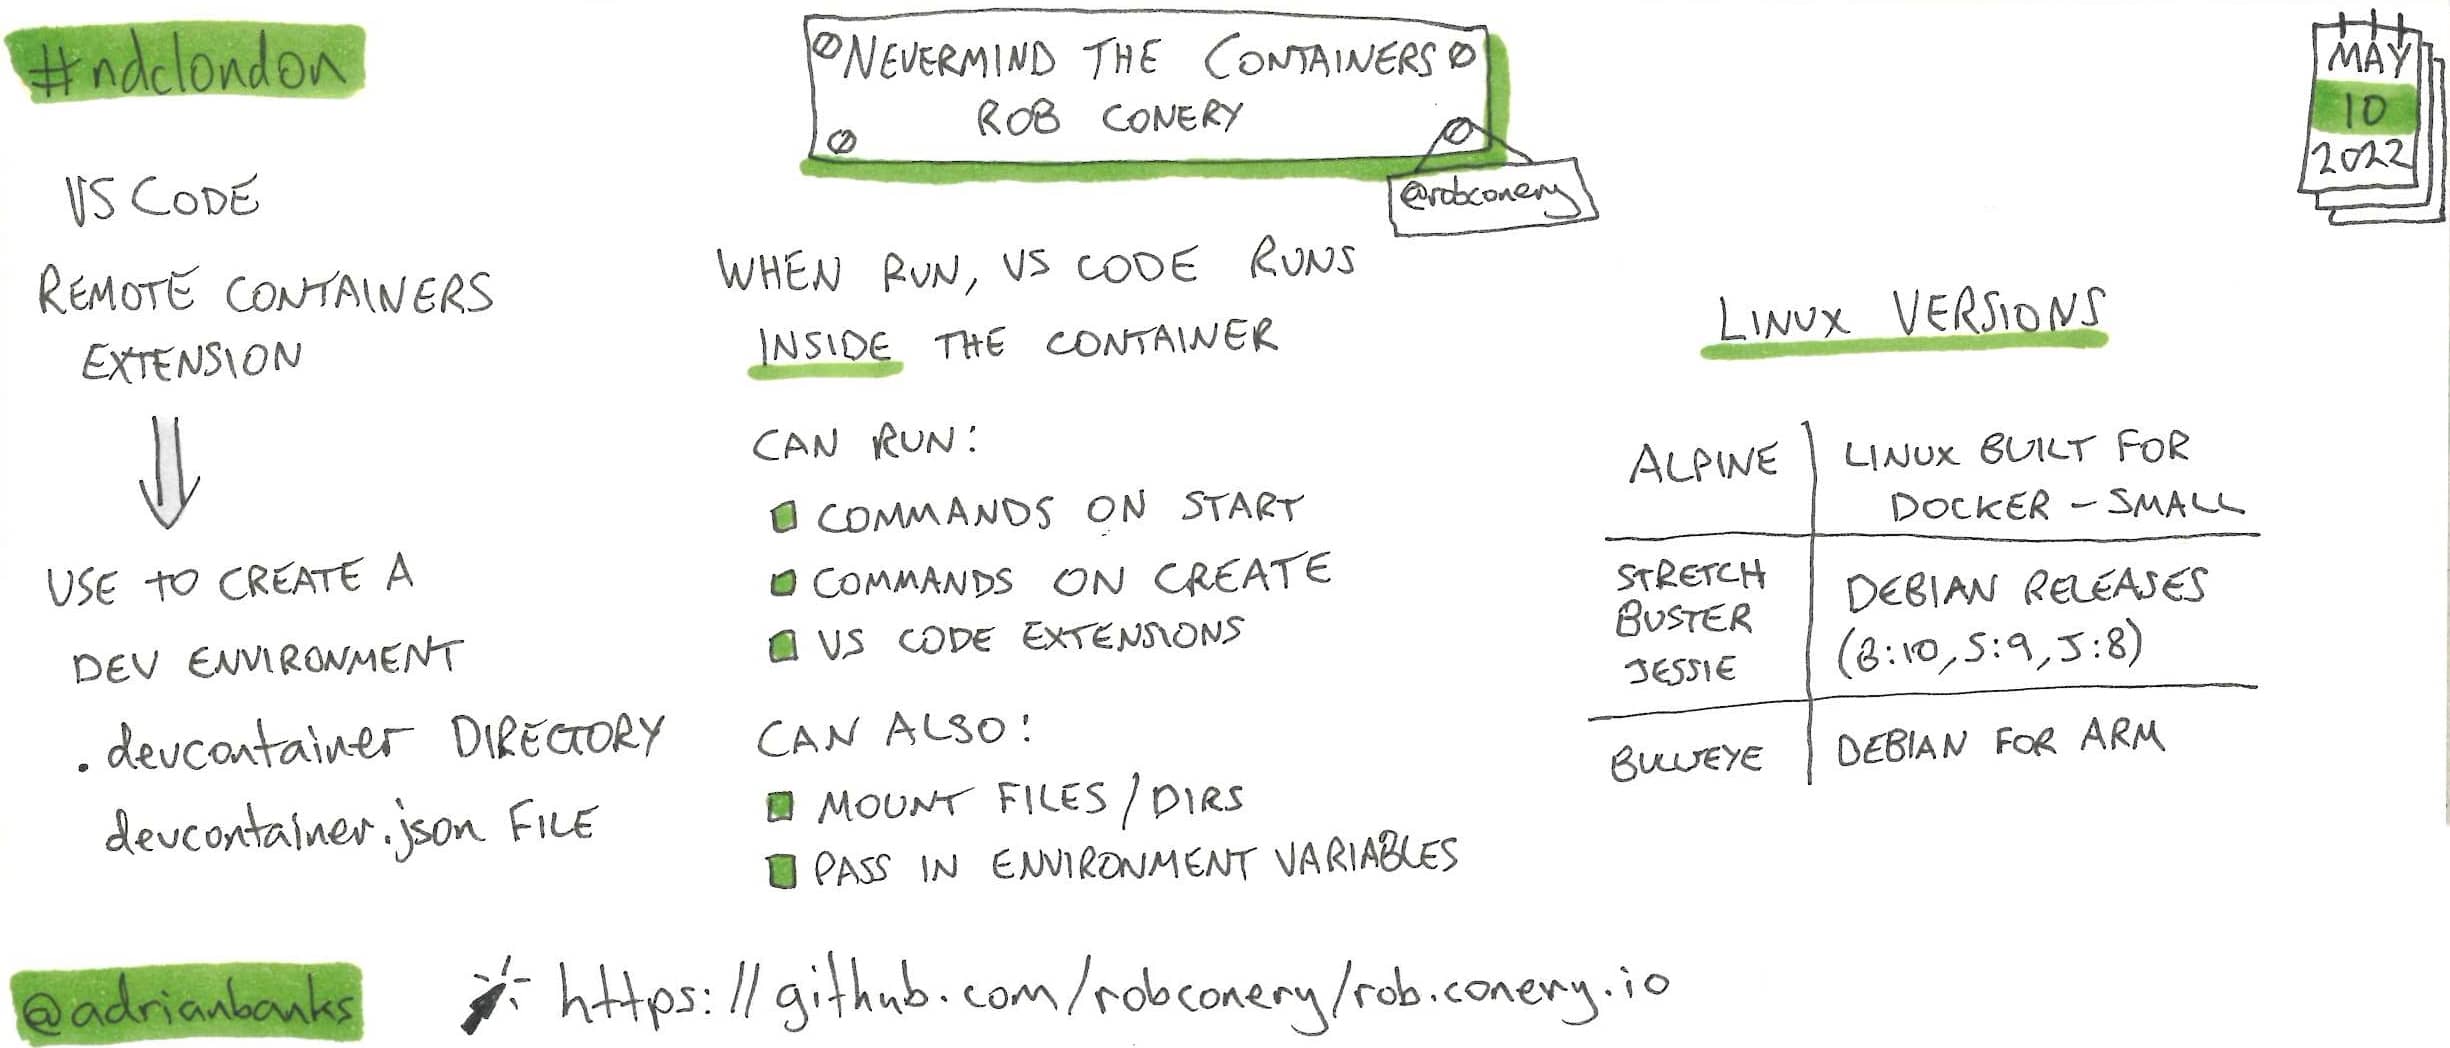 #ndclondon
NEVERMIND THE CONTAINERS
ROB CONERY
@robconery
MAY
10
2022
VS CODE
REMOTE CONTAINERS
EXTENSION
USE TO CREATE A
DEV ENVIRONMENT
.devcontainer DIRECTORY
devcontainer.json FILE
WHEN RUN, VS CODE RUNS
INSIDE THE CONTAINER
CAN RUN:
COMMANDS ON START
COMMANDS ON CREATE
VS CODE EXTENSIONS
CAN ALSO:
MOUNT FILES/DIRS
PASS IN ENVIRONMENT VARIABLES
LINUX VERSIONS
ALPINE
LINUX BUILT FOR
DOCKER - SMALL
STRETCH
BUSTER
JESSIE
DEBIAN RELEASES
(B:10, S:9, J:8)
BULLSEYE
DEBIAN FOR ARM
@adrianbanks
https://github.com/robconery/rob.conery.io